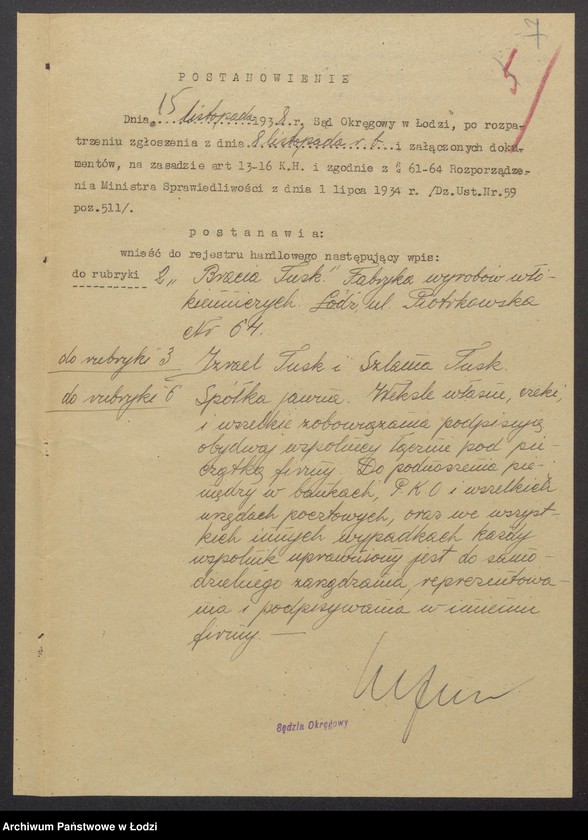 7
5
POSTANOWIENIE
Dnia 15 listopada 1938 r. Sąd Okręgowy w Łodzi, po rozpa-
trzeniu zgłoszenia z dnia 8 listopada r. b. i załączonych doku-
mentów, na zasadzie art 13-16 K.H. i zgodnie z §§ 61-64 Rozporządze-
nia Ministra Sprawiedliwości z dnia 1 lipca 1934 r. /Dz.Ust.Nr.59
poz.511/.
postanawia:
wnieść do rejestru handlowego następujący wpis:
do rubryki 2 „Bracia Tusk." Fabryka wyrobów włó-
kienniczych. Łódź, ul. Piotrkowska
Nr 64.
do rubryki 3 Izrael Tusk i Szlama Tusk.
do rubryki 6 Spółka jawna. Weksle własne, czeki,
i wszelkie zobowiązania podpisują
obydwaj wspólnicy łącznie pod pie-
czątką firmy. Do podnoszenia pie-
niędzy w bankach, P.K.O i wszelkich
urzędach pocztowych, oraz we wszyst-
kich innych wypadkach każdy
wspólnik uprawniony jest do samo-
dzielnego zarządzania, reprezentowa-
nia i podpisywania w imieniu
firmy. —
Sędzia Okręgowy
Archiwum Państwowe w Łodzi